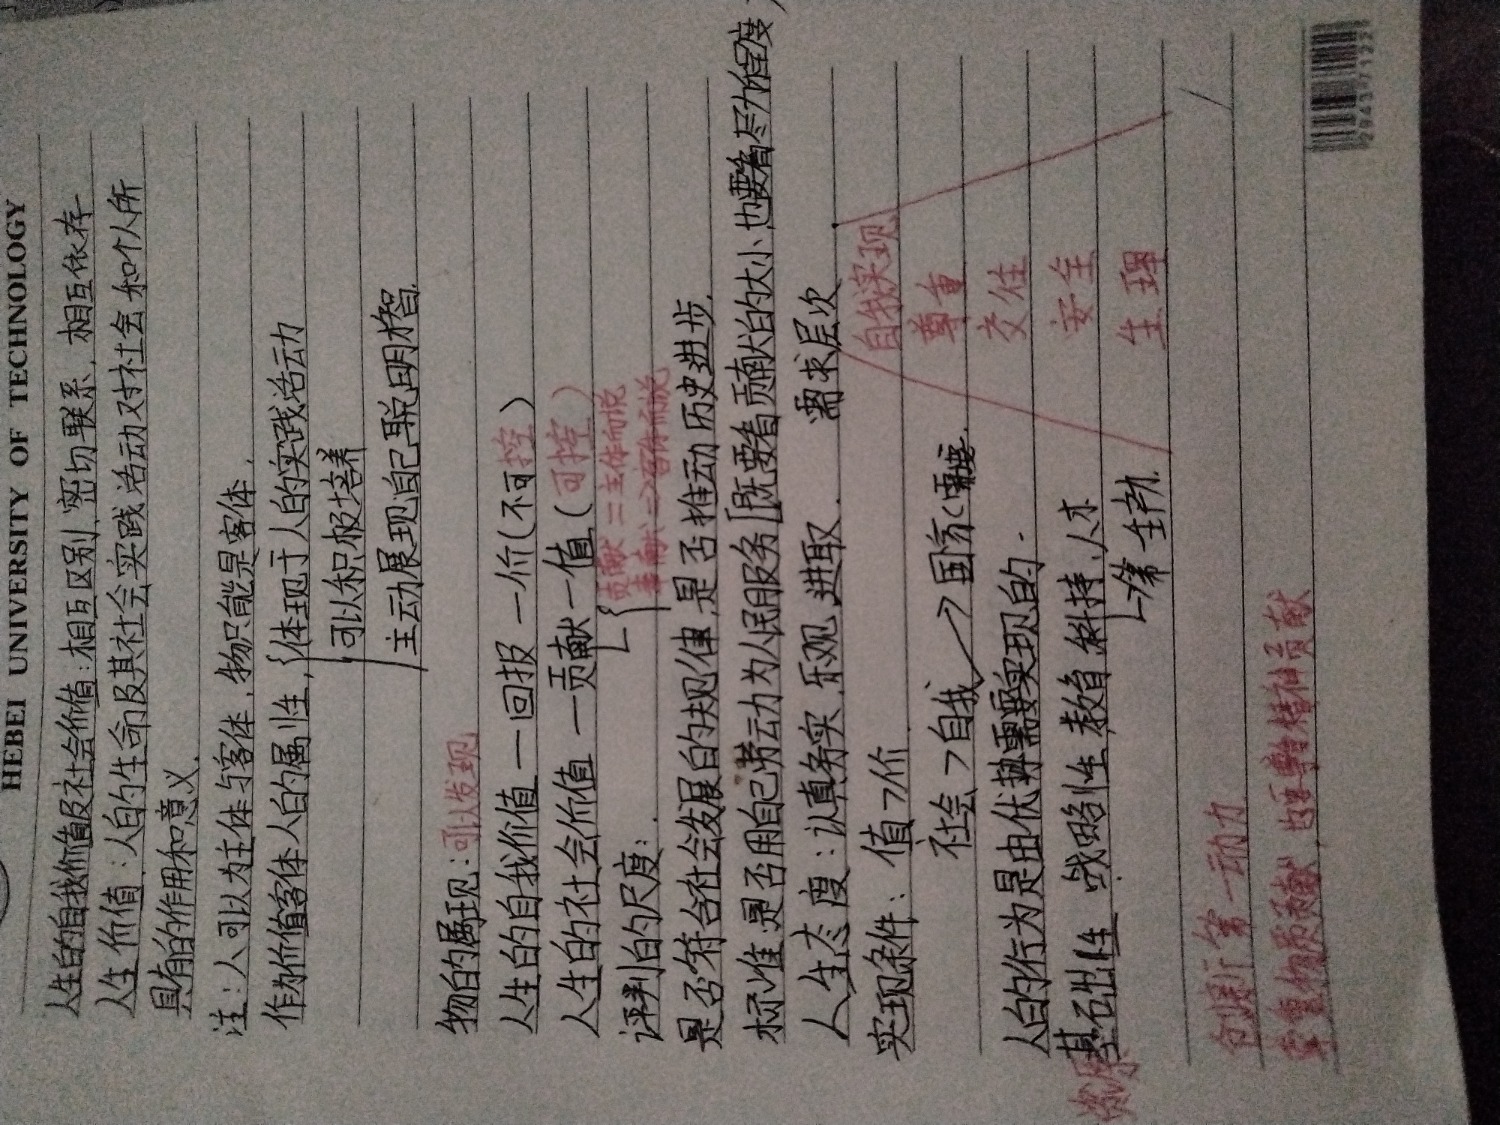 HEBEI UNIVERSITY OF TECHNOLOGY
人生的自我价值及社会价值:相互区别、密切联系、相互依存
人生价值:人的生命及其社会实践活动对社会和个人所
具有的作用和意义.
注:人可以为主体与客体.物只能是客体.
作为价值客体人的属性.体现于人的实践活动
可以积极培养
主动展现自己聪明才智.
物的属现:可以发现
人生的自我价值—回报—价(不可控)
人生的社会价值—贡献—值(可控)
贡献=主体而说
评判的尺度:
是否符合社会发展的规律.是否推动历史进步.
标准 是否用自己劳动为人民服务[既要看贡献的大小.也要看尽力程度
人生态度:认真务实.乐观.进取.
需求层次
实现条件: 值>价
社会>自我→国家(需要.
自我实现
尊重
交往
安全
生理
人的行为是由优势需要实现的.
基础性 战略性 教育 科技 人才
第一生产力.
创新第一动力